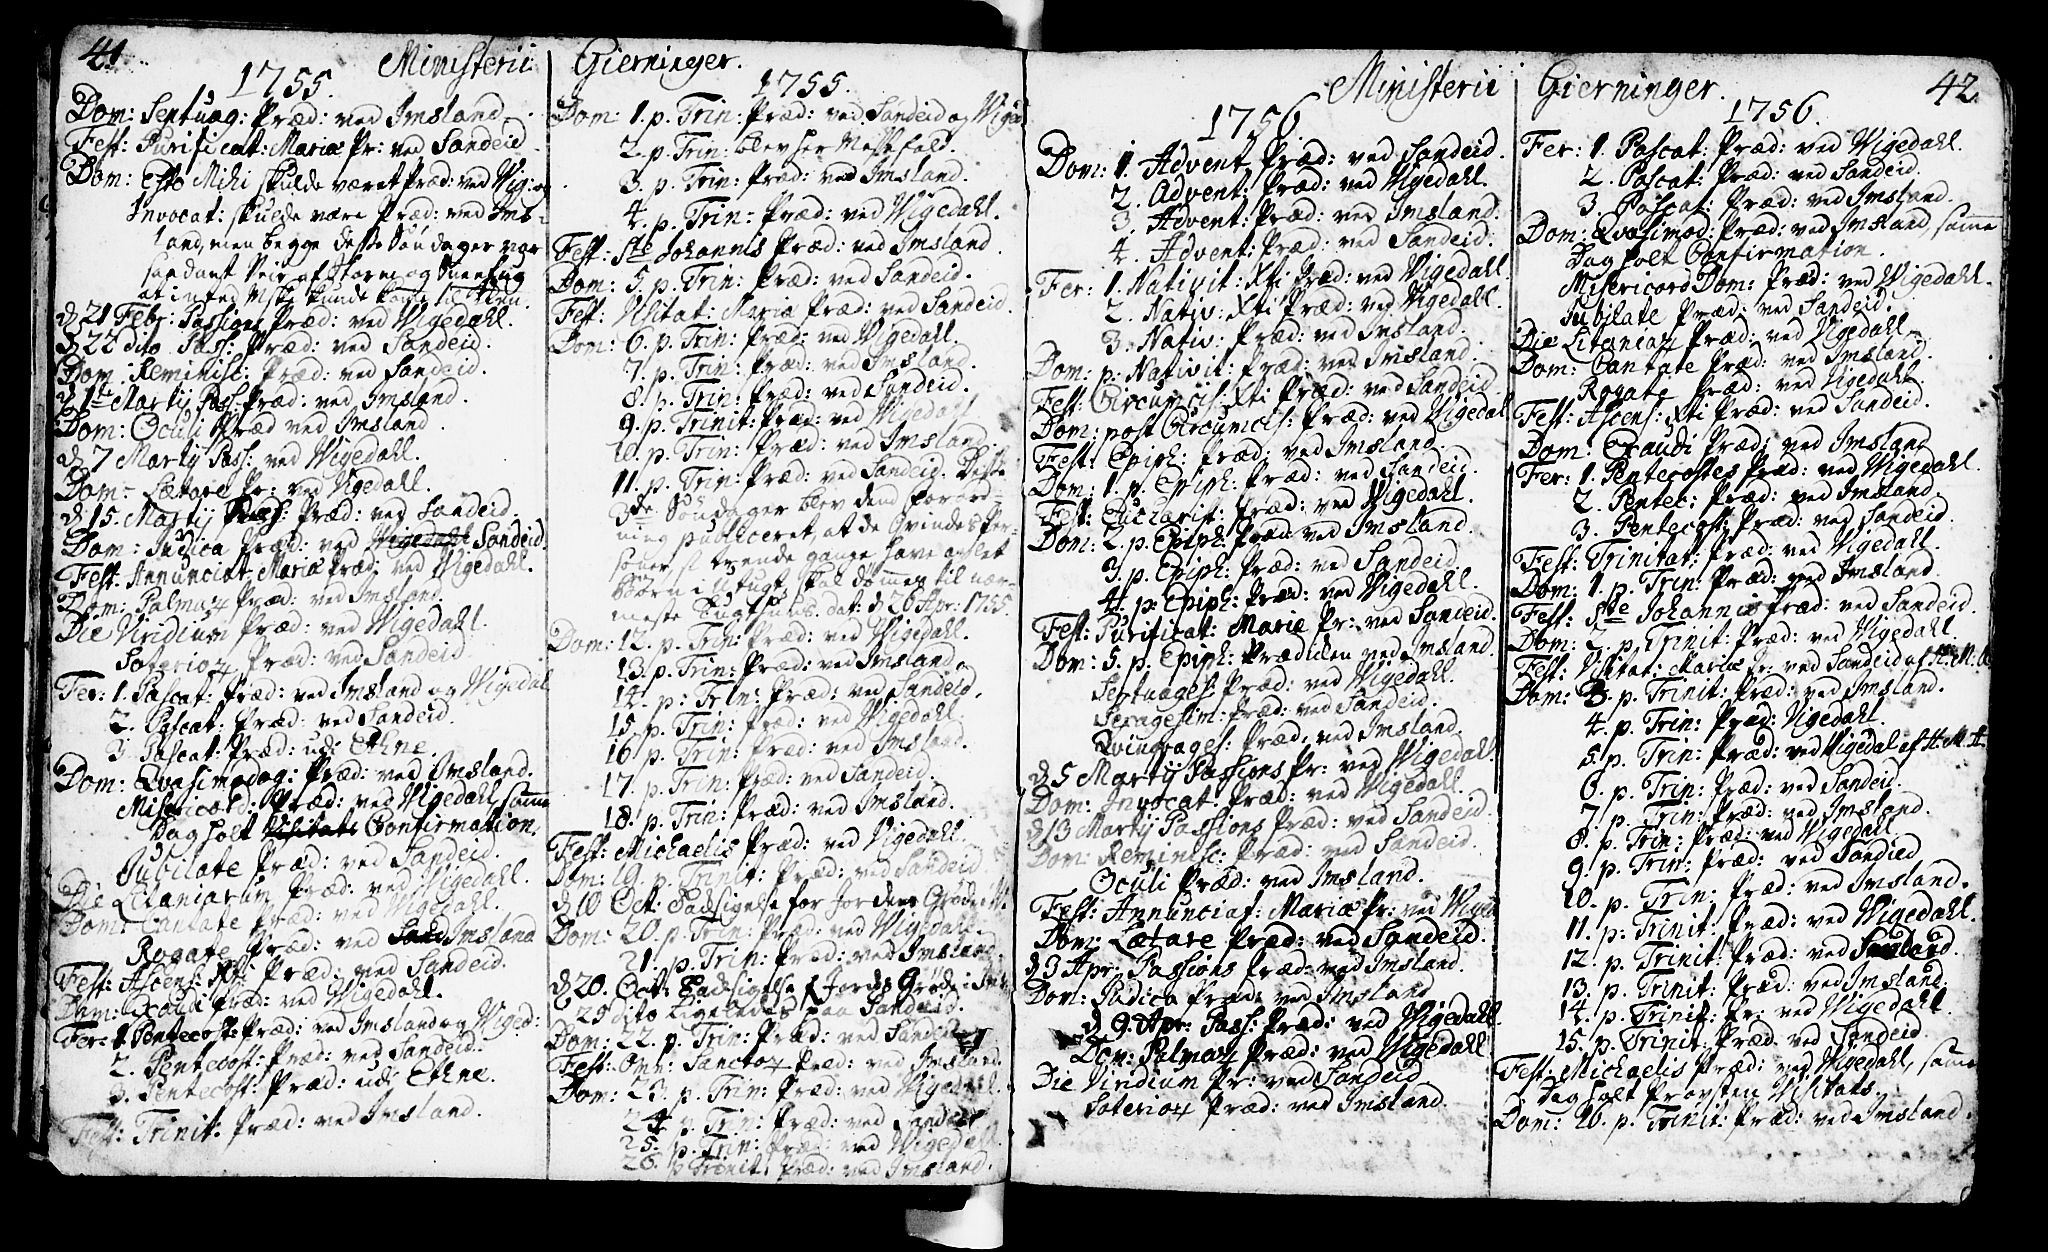 41
Ministerii Gierninger.
1755.
Dom: Septuag: Præd: ved Imsland.
Fest: Purificat: Mariæ Pr: ved Sandeid.
Dom: Esto Mihi skulde været Præd: ved Vig: og
Invocat: skulde være Præd: ved Ims-
land, men begge desse Søndager var
saadant Veir af Storm og Sneefug
at intet Msk: kunde komme til Kirken.
d 21 Febr: Passions Præd: ved Vigedahl.
d 22 dito Pass: Præd: ved Sandeid.
Dom. Reminisc: Præd: ved Sandeid.
d 1ste Martij Pass: Præd: ved Imsland.
Dom: Oculi Præd ved Imsland.
d 7 Martij Pass: ved Vigedahl.
Dom: Lætare Pr: ved Vigedahl.
d 15. Martij Pass: Præd: ved Sandeid.
Dom: Judica Præd: ved Vigedahl Sandeid.
Fest: Annunciat: Mariæ Præd: ved Vigedahl.
Dom: Palmar Præd: ved Imsland.
Die Viridium Præd: ved Vigedahl.
Soterior Præd: ved Sandeid.
Fer: 1. Pascat: Præd: ved Imsland og Vigedal
2. Pascat: Præd: ved Sandeid.
3 Pascat: Præd: udi Ethne.
Dom: Qvasimodog: Præd: ved Imsland.
Misericord: Præd: ved Vigedahl, samme
Dag holt Visitats Confirmation.
Jubilate Præd: ved Sandeid.
Die Litaniarum Præd: ved Vigedahl.
Dom: Cantate Præd: ved Vigedahl.
Rogate Præd: ved Sand Imsland
Fest: Ascens: Xti Præd: ved Sandeid.
Dom: Exaudi Præd: ved Vigedahl.
Fer: 1 Pentecoste Præd: ved Imsland og Viged:
2. Pentecost: Præd: ved Sandeid.
3. Pentecost: Præd: udi Ethne.
Fest: Trinit: Præd: ved Imsland.
1755.
Dom: 1. p. Trin: Præd: ved Sandeid og Viged
2. p. Trin: blev her Messefald.
3. p. Trin: Præd: ved Imsland.
4. p. Trin: Præd: ved Vigedahl.
Fest: Ste Johannis Præd: ved Imsland
Dom: 5. p. Trin: Præd: ved Sandeid.
Fest: Visitat: Mariæ Præd: ved Sandeid.
Dom: 6. p. Trin: Præd: ved Vigedahl.
7. p. Trin: Præd: ved Imsland.
8. p. Trin: Præd: ved Sandeid.
9. p. Trinit: Præd: ved Vigedahl
10. p. Trin: Præd: ved Imsland.
11. p. Trin: Præd: ved Sandeid. Desse
3de Søndager blev den Forord-
ning publiceret, at de Qvindes Per-
soner, s trende gange have avlet
Børn i Utugt, skal dømmes til nær-
meste Tugthus. dat: d 26 Apr: 1755.
Dom: 12. p. Trin: Præd: ved Vigedahl.
13. p. Trin: Præd: ved Imsland.
14. p: Trin: Præd: ved Sandeid.
15. p. Trin: Præd: ved Vigedahl.
16. p. Trin: Præd: ved Imsland.
17. p. Trin: Præd: ved Sandeid.
18. p. Trin: Præd: ved Imsland.
Fest: Michaelis Præd: ved Vigedahl.
Dom: 19. p. Trinit: Præd: ved Sandeid.
d 10 Oct: Tacksigelse for Jordens Grøde i V.
Dom: 20. p. Trin: Præd: ved Vigedahl.
21. p. Trin: Præd: ved Imsland.
d 20. Oct: Tacksigelse f Jordes Grøde i Ims
25 dito ligeledes paa Sandeid.
Dom: 22. p. Trin: Præd: ved Sandeid
Fest: Omn: Sanctor Præd: ved Imsland.
Dom: 23. p. Trin: Præd: ved Vigedahl.
24. p. Trin: Præd: ved Sandeid
25. p. Trin: Præd: ved Vigedahl.
26. p Trinit: Præd: ved Imsland.
Ministerii Gierninger.
42
1756
Dom: 1. Advent Præd: ved Sandeid.
2. Advent: Præd: ved Vigedahl.
3. Advent: Præd: ved Imsland.
4. Advent: Præd: ved Sandeid.
Fer: 1. Nativit: Xti Præd: ved Vigedahl
2. Nativ: Xti Præd: ved Vigedahl.
3. Nativ: Præd: ved Imsland.
Dom: p. Nativit: Præd: ved Imsland.
Fest: Circumcis: Xti Præd: ved Sandeid
Dom: post Circumcis: Præd: ved Vigedal
Fest: Epiph: Præd: ved Imsland.
Dom: 1. p. Epiph: Præd: ved Sandeid.
Fest: Eucharist: Præd: ved Vigedahl.
Dom: 2. p. Epiph: Præd ved Imsland.
3. p. Epiph: Præd: ved Sandeid.
4. p: Epiph: Præd: ved Vigedahl.
Fest: Purificat: Mariæ Pr: ved Sandeid.
Dom: 5. p. Epiph: Prædiken ved Imsland.
Septuages: Præd: ved Vigedahl.
Sexagesim: Præd: ved Sandeid.
Qvinqvages: Præd: ved Imsland.
d 5 Martij Passions Pr: ved Vigedahl.
Dom: Invocat: Præd: ved Vigedahl.
d 13 Martij Passions Præd: ved Sandeid.
Dom: Reminisc: Præd: ved Sandeid.
Oculi Præd: ved Imsland.
Fest: Annunciat: Mariæ Pr: ved Viged
Dom: Lætare Præd: ved Sandeid.
d 3 Apr: Passions Præd: ved Imsland.
Dom: Judica Præd: ved Imsland
d 9. Apr: Pass: Præd: ved Vigedahl.
Dom: Palmar Præd: ved Vigedahl
Die Viridium Pr: ved Sandeid
Soterior Præd: ved Imsland.
1756.
Fer: 1. Pascat: Præd: ved Vigedahl.
2. Pascat: Præd: ved Sandeid.
3. Pascat: Præd: ved Imsland.
Dom: Qvasimod: Præd: ved Imsland, samme
Dag holt Confirmation.
Misericord Dom: Præd: ved Vigedahl.
Jubilate Præd: ved Sandeid.
Die Litaniar Præd: ved Vigedahl
Dom: Cantate Præd: ved Imsland.
Rogate Præd: ved Vigedahl.
Fest: Ascens: Xti Præd: ved Sandeid.
Dom: Exaudi Præd: ved Imsland
Fer: 1. Pentecostes Præd: ved Vigedahl.
2. Pentec: Præd: ved Imsland.
3. Pentecost: Præd: ved Sandeid.
Fest: Trinitat: Præd: ved Vigedahl.
Dom: 1. p. Trin: Præd: ved Imsland.
Fest: Ste Johannis Præd: ved Sandeid.
Dom: 2. p. Trinit: Præd: ved Vigedahl.
Fest: Visitat: Mariæ Pr: ved Sandeid af H. M.
Dom: 3. p. Trinit: Præd: ved Imsland.
4. p. Trin: Præd: Vigedahl.
5. p. Trin: Præd: ved Vigedal af H. M. A
6. p. Trin: Præd: ved Sandeid.
7. p. Trin: Præd: ved Imsland.
8. p. Trin: Præd: ved Vigedahl
9. p. Trin: Præd: ved Sandied
10. p. Trin: Præd: ved Imsland.
11. p: Trinit: Præd: ved Vigedahl.
12. p. Trinit: Præd: ved
13. p. Trinit: Præd: ved Imsland.
14. p. Trinit: Pr: ved Vigedahl.
15. p. Trinit: Præd: ved Sandeid.
Fest: Michaelis Præd: ved Vigedahl, samme
Dag holt Provsten Visitats.
Dom: 16. p. Trinit: Præd: ved Imsland.